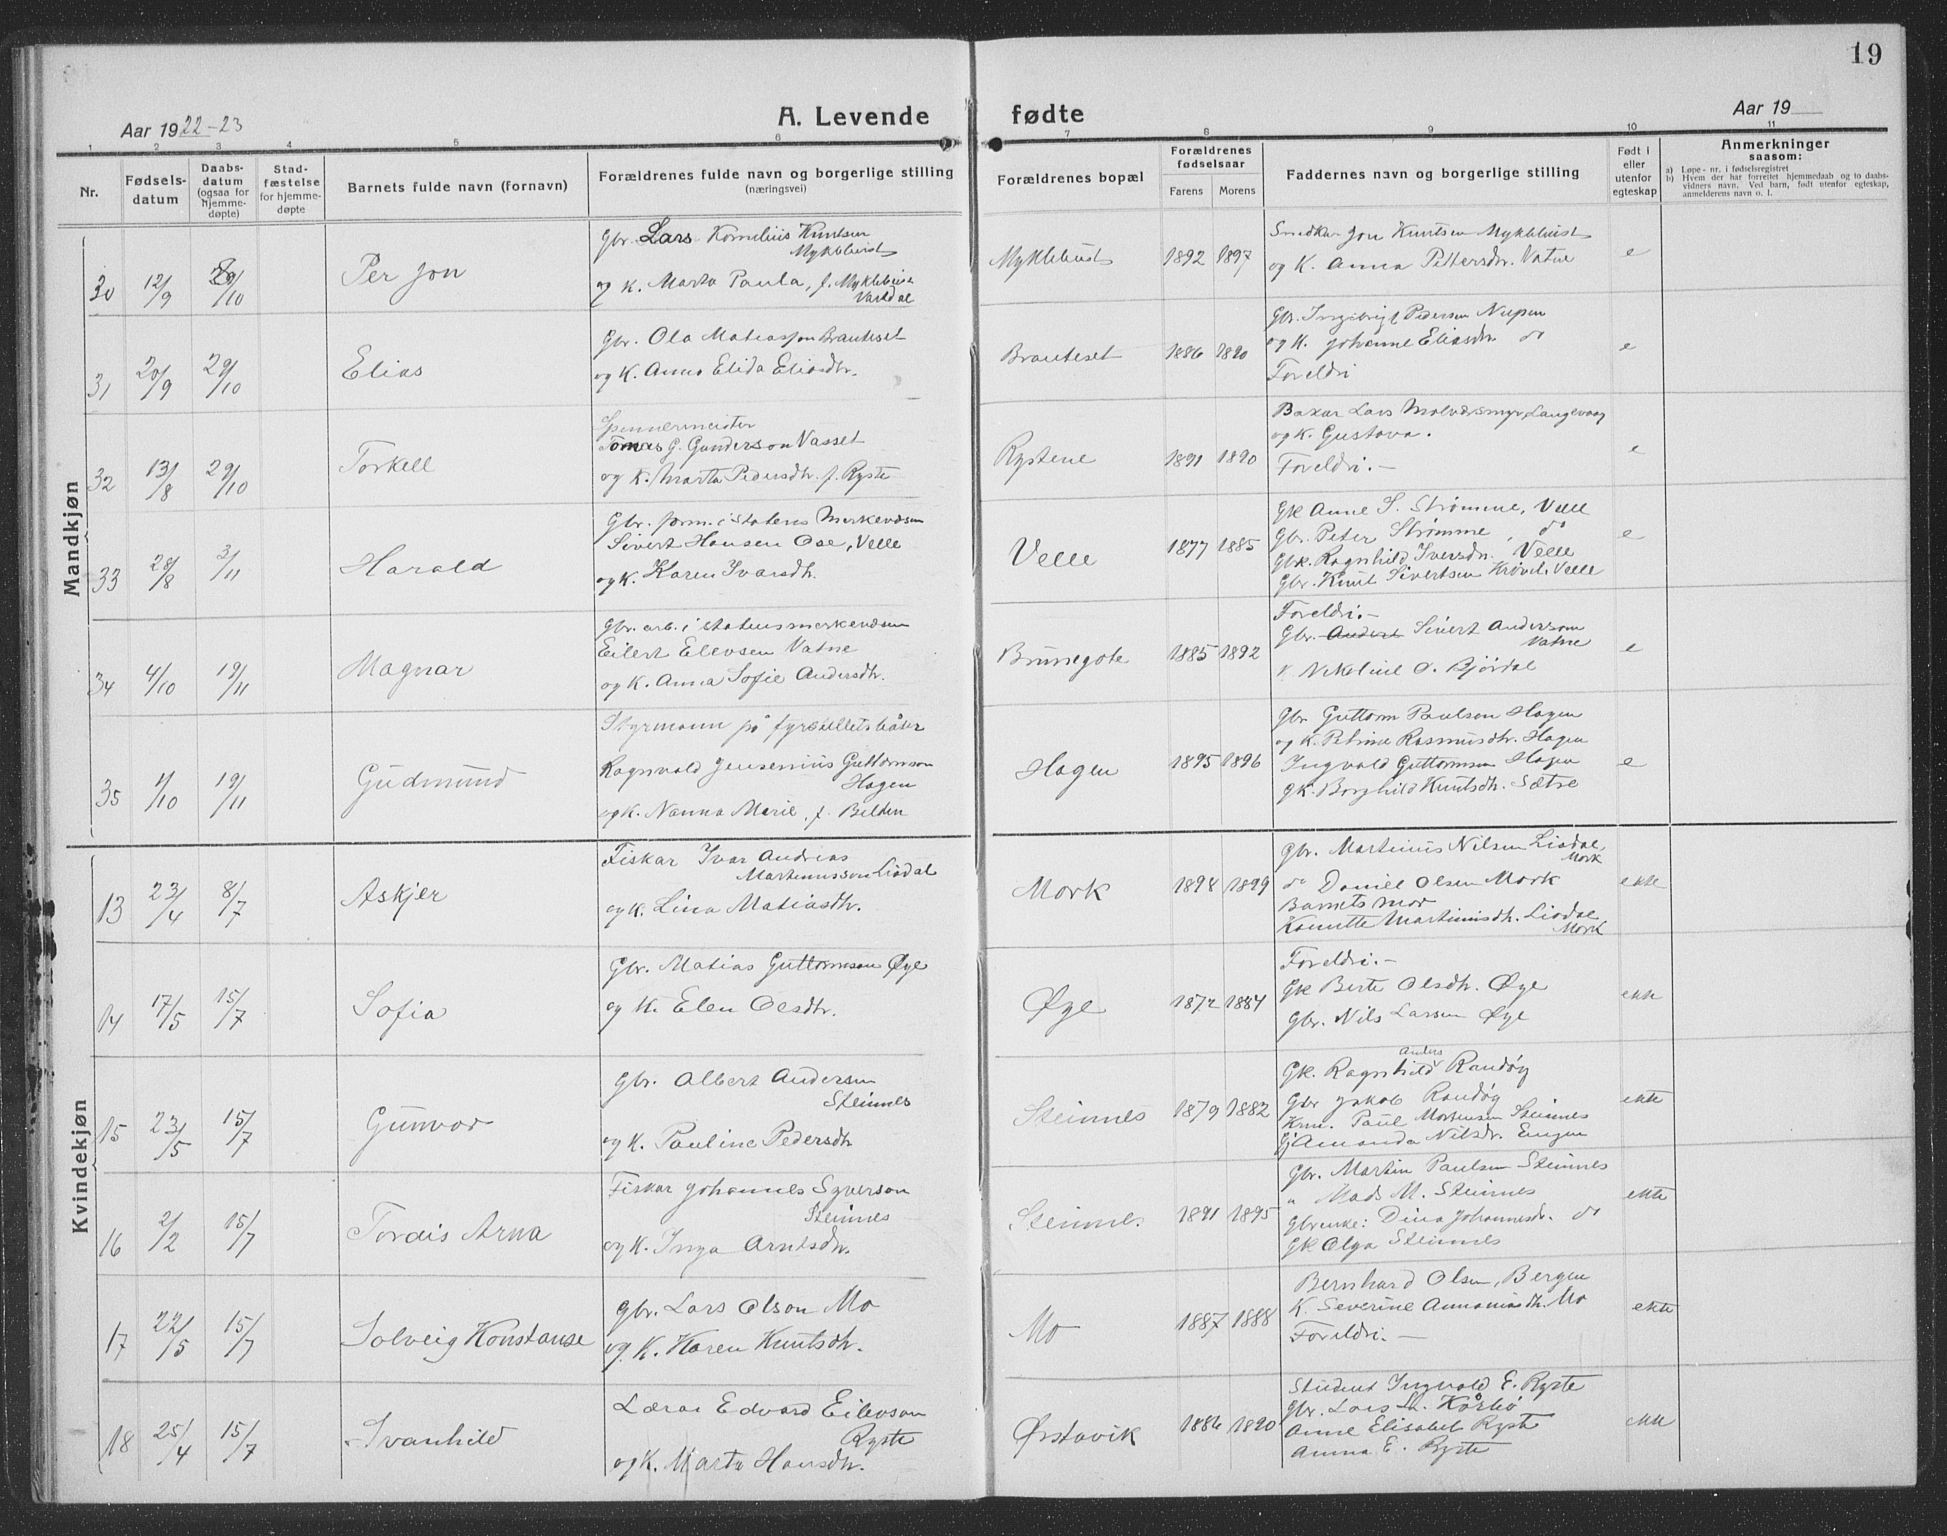 19
Aar 1922-23
A. Levende fødte
Aar 19
1 2 3 4 5 6 7 8 9 10 11
Nr.
Fødsels-
datum
Daabs-
datum
(ogsaa for
hjemme-
døpte)
Stad-
fæstelse
for hjemme-
døpte
Barnets fulde navn (fornavn)
Forældrenes fulde navn og borgerlige stilling
(næringsvei)
Forældrenes bopæl
Forældrenes
fødselsaar
Farens Morens
Faddernes navn og borgerlige stilling
Født i
eller
utenfor
egteskap
Anmerkninger
saasom:
a) Løpe-nr. i fødselsregistret
b) Hvem der har forrettet hjemmedaab og to daabs-
vidners navn. Ved barn, født utenfor egteskap,
anmelderens navn o. l.
Mandkjøn
30 12/9 29/10 Per Jon
Gbr. Lars Kornelius Knutsen
Myklebust
og K. Marta Paula, f. Myklebust
Vartdal
Myklebust 1892 1897
Smedkar Jon Knutsen Myklebust
og K. Anna Pettersdtr. Vatne
e
31 20/9 29/10 Elias
Gbr. Ola Matiasson Brauteset
og K. Anna Elida Eliasdtr.
Brauteset 1886 1890
Gbr. Ingebrigt Pedersen Nupen
og K. Johanne Eliasdtr. do
Foreldri
e
32 13/8 29/10 Torkell
Spennermeister
Tomas G. Gunderson Vasset
og K. Marta Pedersdtr. f. Ryste
Rystene 1891 1890
Bakar Lars Molværsmyr, Langevaag
og K. Gustava.
Foreldri.-
e
33 28/8 3/11 Harald
Gbr. form. i statens Merkevæsen
Sivert Hansen Ose, Velle
og K. Karen Ivarsdtr.
Velle 1877 1885
Gk Anne S. Strømme, Velle
Gbr. Peter Strømme, do
Gbk. Ragnhild Iversdtr. Velle
Gbr. Knut Sivertsen Krøvel, Velle
e
34 4/10 19/11 Magnar
Gbr. arb. i statensmerkevæsen
Eilert Elevsen Vatne
og K. Anna Sofie Andersdtr.
Brunegote 1885 1892
Foreldri.-
Gbr. Anders Sivert Andersson
Vatne
K. Nikoline O. Bjørdal
e
35 1/10 19/11 Gudmund
Styrmann på fyrstelletsbåter
Ragnvald Jensenius Guttormson
Hagen
og K. Nanna Marie, f. Bilden
Hagen 1895 1896
Gbr. Guttorm Paulson Hagen
og K. Petrine Rasmusdtr. Hagen
Ingvald Guttormsen Hagen
gk. Borghild Knutsdtr. Sætre
e
Kvindekjøn
13 23/4 8/7 Askjer
Fiskar Ivar Andreas
Martinusson Liadal
og K. Lina Matiasdtr.
Mork 1898 1899
Gbr. Martinus Nilsen Liadal,
Mork
do Daniel Olsen Mork
Barnets mor
Kanutte Martinusdtr. Liadal,
Mork
ekte
14 17/5 15/7 Sofia
Gbr. Matias Guttormson Øye
og K. Elen Olsdtr.
Øye 1872 1884
Foreldri.-
Gk Berte Olsdtr. Øye
Gbr. Nils Larsen Øye
ekte
15 23/5 15/7 Gunvor
Gbr. Albert Andersen
Steinnes
og K. Pauline Pedersdtr
Steinnes 1879 1882
Anders
Gk. Ragnhild Randøy
Gbr Jakob Randøy
Krm. Paul Mortensen Steinnes
Gj Amanda Nilsdr. Engen
ekte
16 2/2 15/7 Tordis Arna
Fiskar Johannes Syverson
Steinnes
og K. Inga Arntsdtr.
Steinnes 1891 1895
Gbr. Martin Paulsen Steinnes
" Mads M. Steinnes
Gbrenke: Dina Johannesdr. do
Gk Olga Steinnes
ekte
17 22/5 15/7 Solveig Konstanse
Gbr. Lars Olson Mo
og K. Karen Knutsdtr.
Mo 1887 1888
Bernhard Olsen, Bergen
K. Severine Annaniasdtr. Mo
Foreldri.-
ekte
18 25/4 15/7 Svanhild
Lærar Edvard Eilevson
Ryste
og K. Marta Hansdtr.
Ørstavik 1886 1890
Student Ingvald E. Ryste
Gbr. Lars L. Hårbø
Anne Elisabet Ryste
Anna E. Ryste
ekte